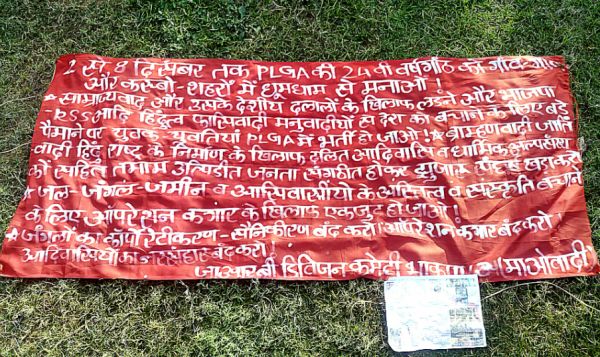 2 से 8 दिसंबर तक PLGA की 24 वी वर्षगाँठ को गाँव-गाँव
और कस्बो-शहरों में धूमधाम से मनाओ!
★ साम्राज्यवाद और उसके देशीय दलालों के खिलाफ लड़ने और भाजपा
RSS आदि हिंदुत्व फासिवादी मनुवादीयों से देश को बचाने के लिए बड़े
पैमाने पर युवक युवतियाँ PLGA में भर्ती हो जाओ! ★ ब्राम्हणवादी जाति
वादी हिंदु राष्ट्र के निर्माण के खिलाफ दलित आदिवासि व धार्मिक अल्पसंख्य
कों सहित तमाम उत्पिडीत जनता संगठीत होकर झुजारु संघर्ष खड़ा करो
★ जल-जंगल-जमीन व आदिवासीयो के अस्तित्व व संस्कृति बचाने
के लिए ऑपरेशन कगार के खिलाफ एकजुट हो जाओ!
★ जंगलों का कॉर्पोरेटीकरण-सैनिकीकरण बंद करो। ऑपरेशन कगार बंद करो!
आदिवासियों का नरसंहार बंद करो!
डिविजन कमेटी भाकपा (माओवादी)